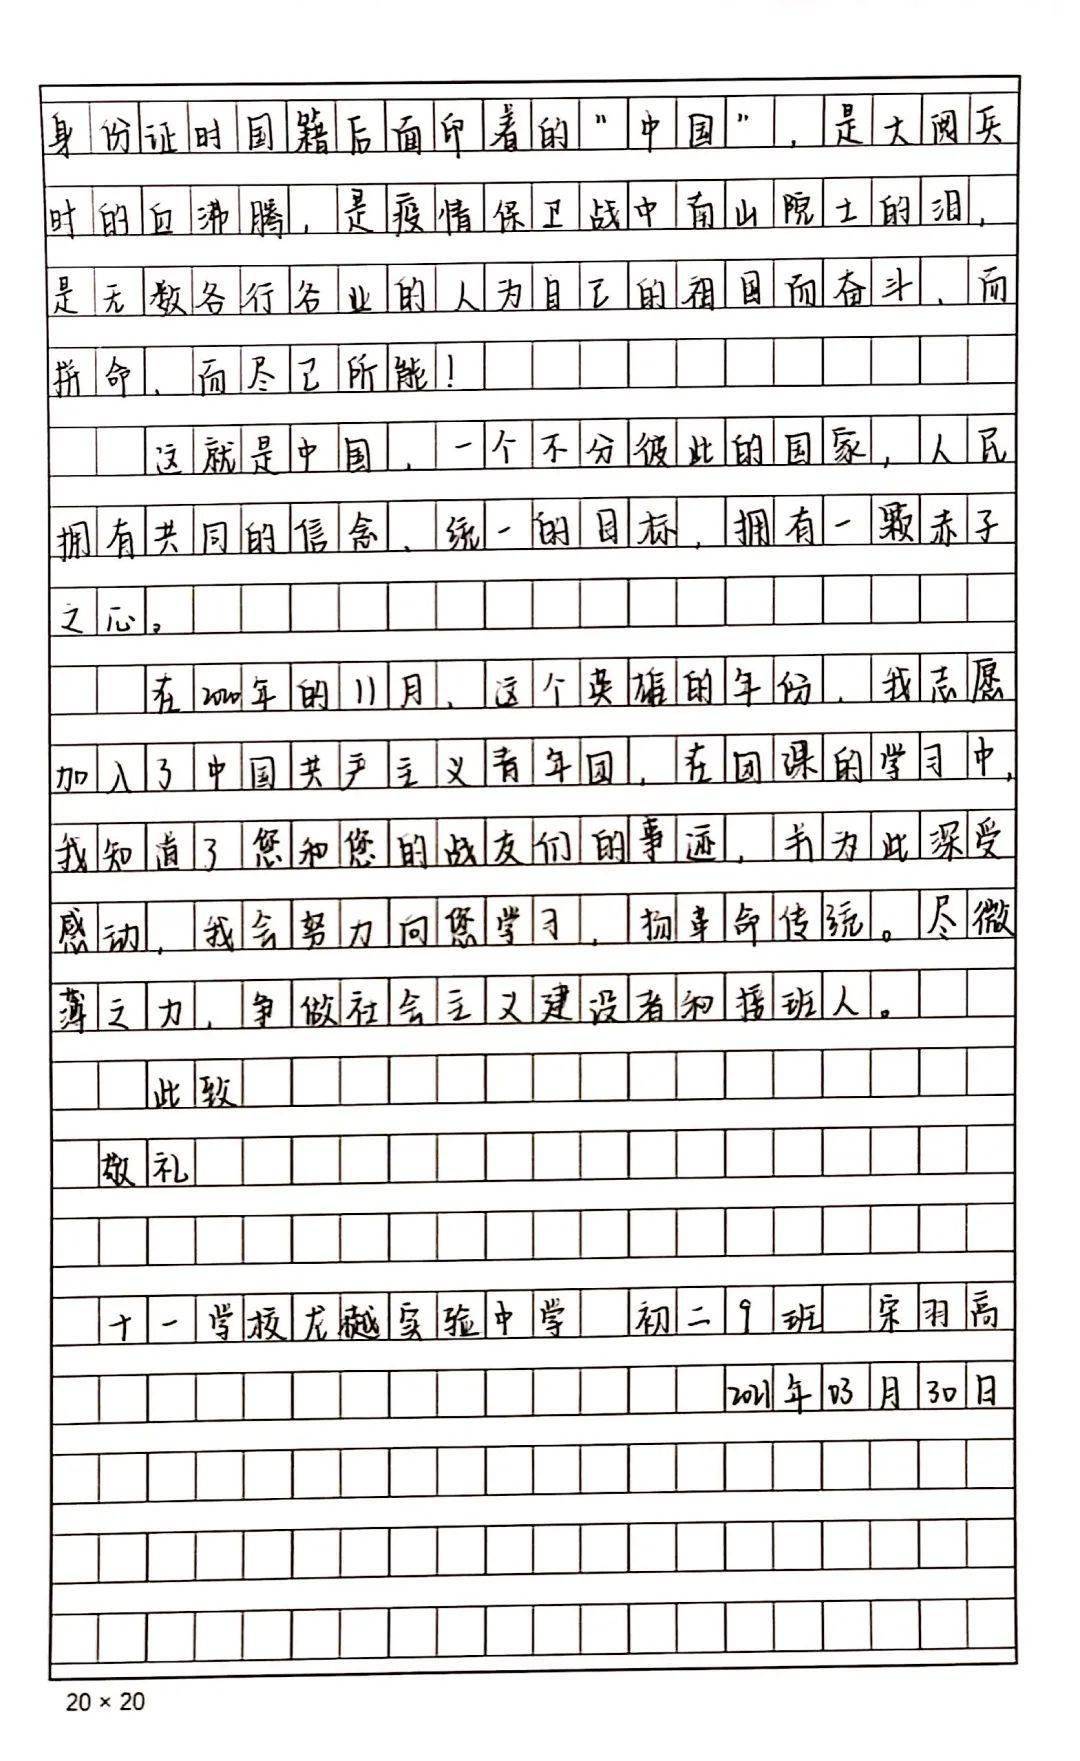 身份证时国籍后面印着的"中国"，是大阅兵
时的血沸腾，是疫情保卫战中南山院士的泪，
是无数各行各业的人为自己的祖国而奋斗、而
拼命、而尽己所能！
这就是中国，一个不分彼此的国家，人民
拥有共同的信念、统一的目标，拥有一颗赤子
之心。
在2020年的11月，这个英雄的年份，我志愿
加入了中国共产主义青年团，在团课的学习中，
我知道了您和您的战友们的事迹，并为此深受
感动，我会努力向您学习，扬革命传统。尽微
薄之力，争做社会主义建设者和接班人。
此致
敬礼
十一学校龙樾实验中学 初二9班 宋羽高
2021年03月30日
20×20